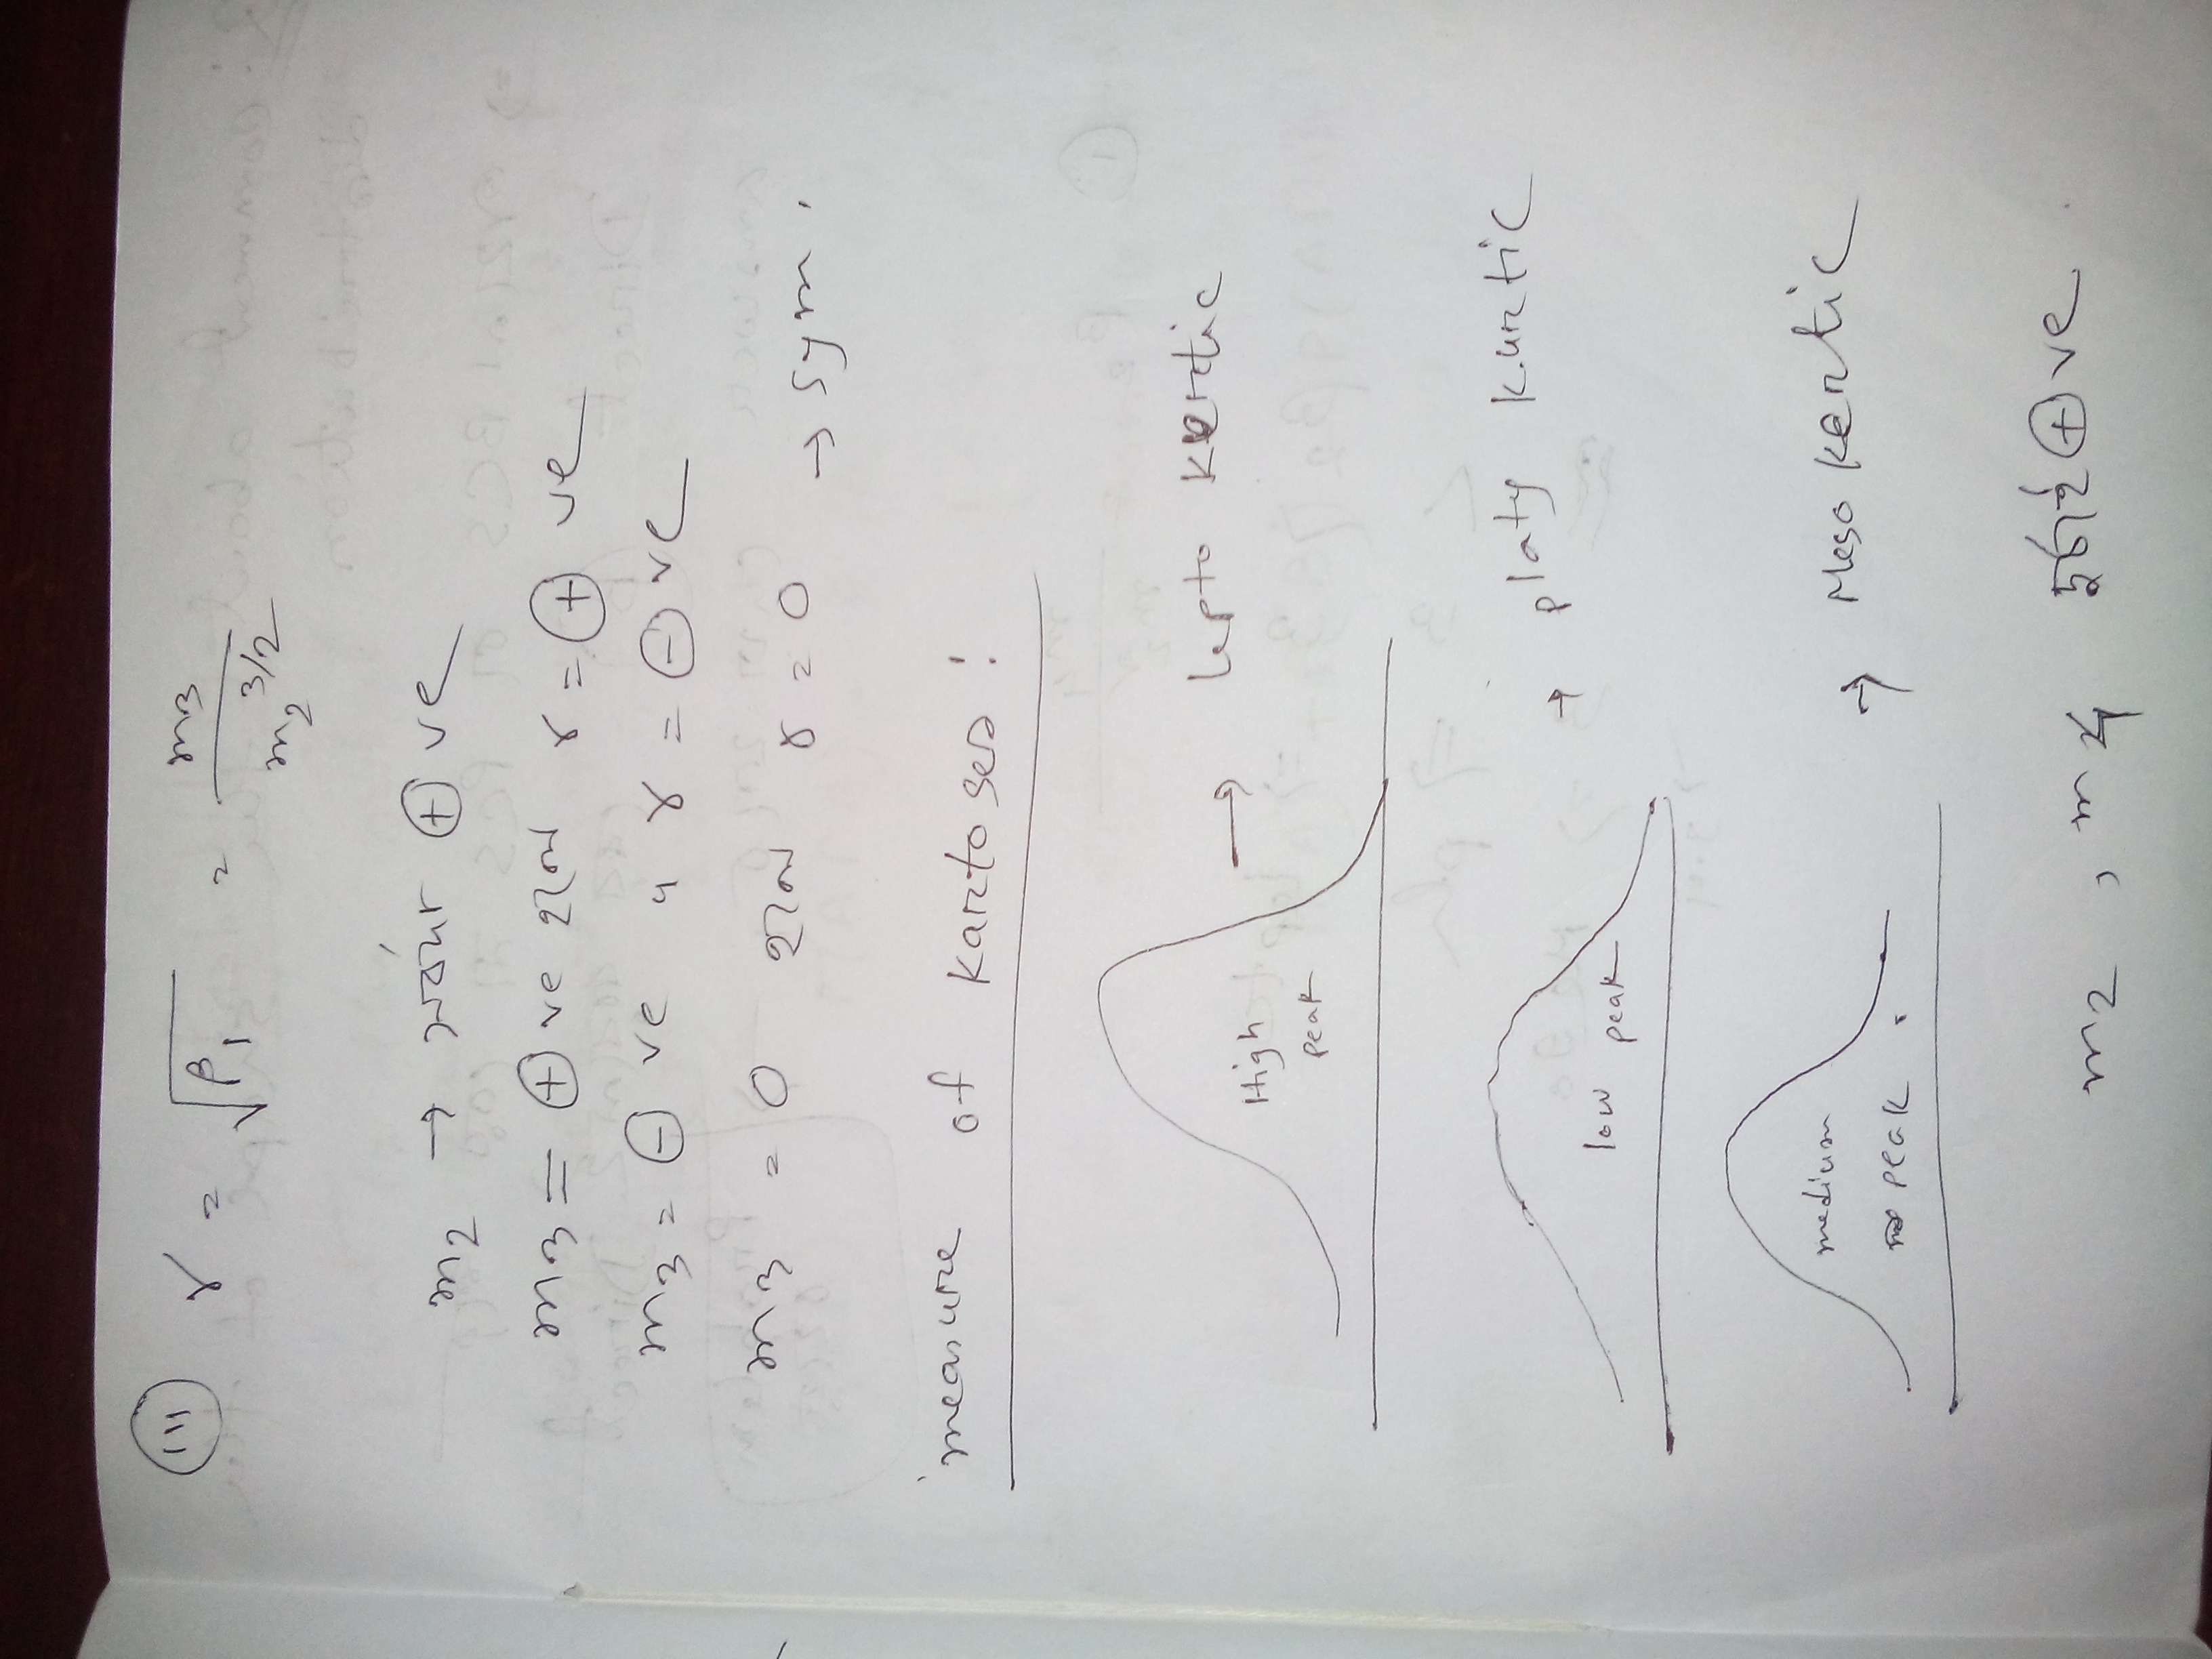 (iii) γ = √β₁ = m₃ / m₂^3/2
m₂ → সর্বদা ⊕ ve
m₃ = ⊕ ve হলে γ = ⊕ ve
m₃ = ⊖ ve " γ = ⊖ ve
m₃ = 0 হলে γ = 0 → sym.
measure of Kartoses :
High peak → Lepto kertic
low peak → platy kurtic
medium peak → Meso kertic
m₂ , m₄ ⊕ ve